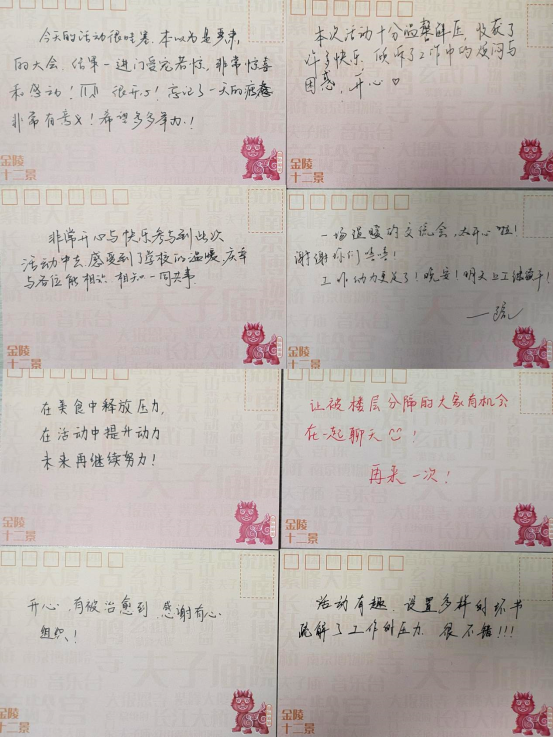 今天的活动很哇塞,本以为是严肃
的大会,结果一进门受宠若惊,非常惊喜
和感动!很开心!忘记了一天的疲惫
非常有意义!希望多多举办!!
金陵
十二景
本次活动十分温馨解压,收获了
许多快乐,倾诉了工作中的烦闷与
困惑,开心♡
金陵
十二景
非常开心与快乐参与到此次
活动中去,感受到了学校的温暖,庆幸
与各位能相识、相知一同共事
金陵
十二景
一场温暖的交流会,太开心啦!
谢谢你们
工作动力更足了!晚安!明天上工继续干!
金陵
十二景
在美食中释放压力,
在活动中提升动力
未来再继续努力!
金陵
十二景
让被楼层分隔的大家有机会
在一起聊天!
再来一次!
金陵
十二景
开心,有被治愈到,感谢有心
组织!
金陵
十二景
活动有趣,设置多样的环节
疏解了工作的压力,很不错!!!
金陵
十二景